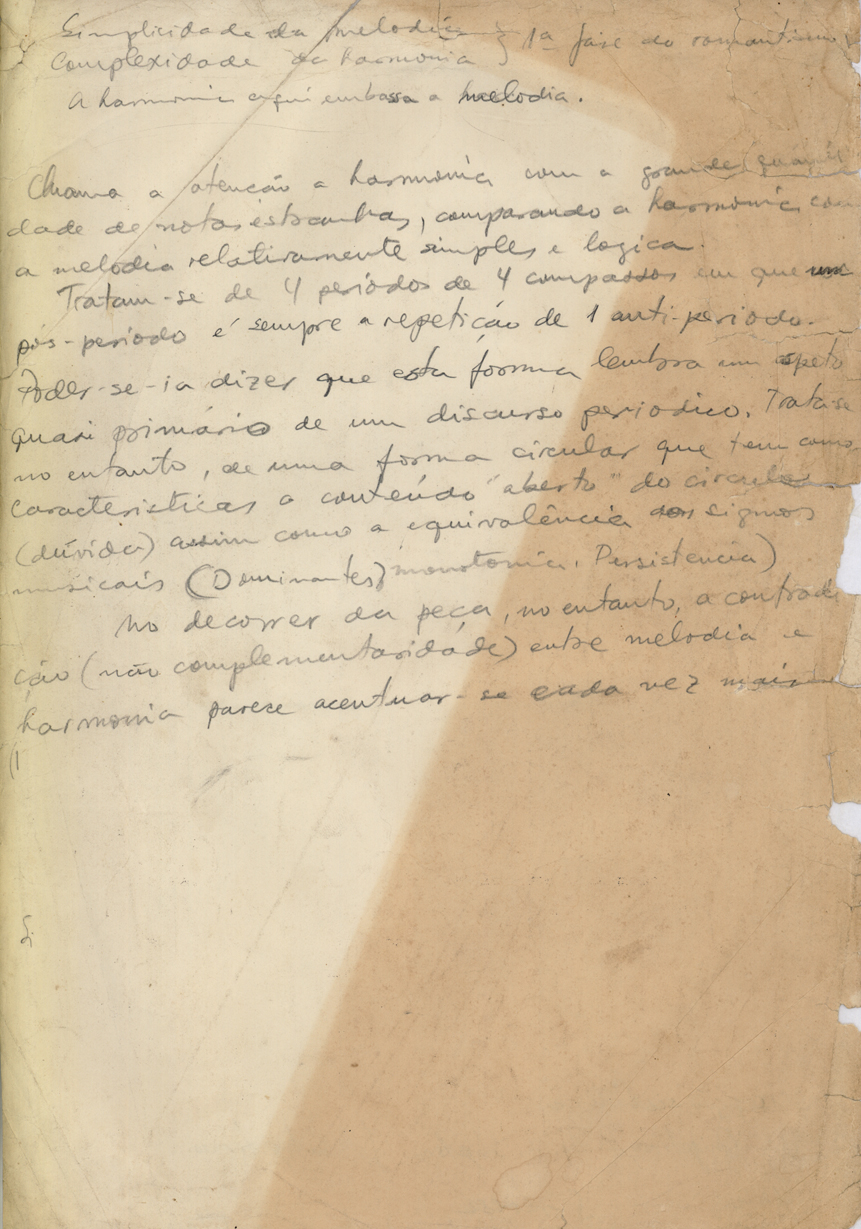 Simplicidade da melodia } 1ª fase do romantismo
Complexidade da harmonia
A harmonia aqui embassa a melodia.
Chama a atenção a harmonia com a grande quanti
dade de notas estranhas, comparando a harmonia com
a melodia relativamente simples e logica.
Tratam-se de 4 períodos de 4 compassos em que um
pós-período é sempre a repetição de 1 anti-periodo.
Poder-se-ia dizer que esta forma lembra um aspeto
quasi primário de um discurso periodico. Trata-se
no entanto, de uma forma circular que tem como
caracteristicas o conteúdo "aberto" do circulo
(dúvida) assim como a equivalência dos signos
musicais (Dominantes) monotonia. Persistencia)
No decorrer da peça, no entanto, a contradi
ção (não complementaridade) entre melodia e
harmonia parece acentuar-se cada vez mais